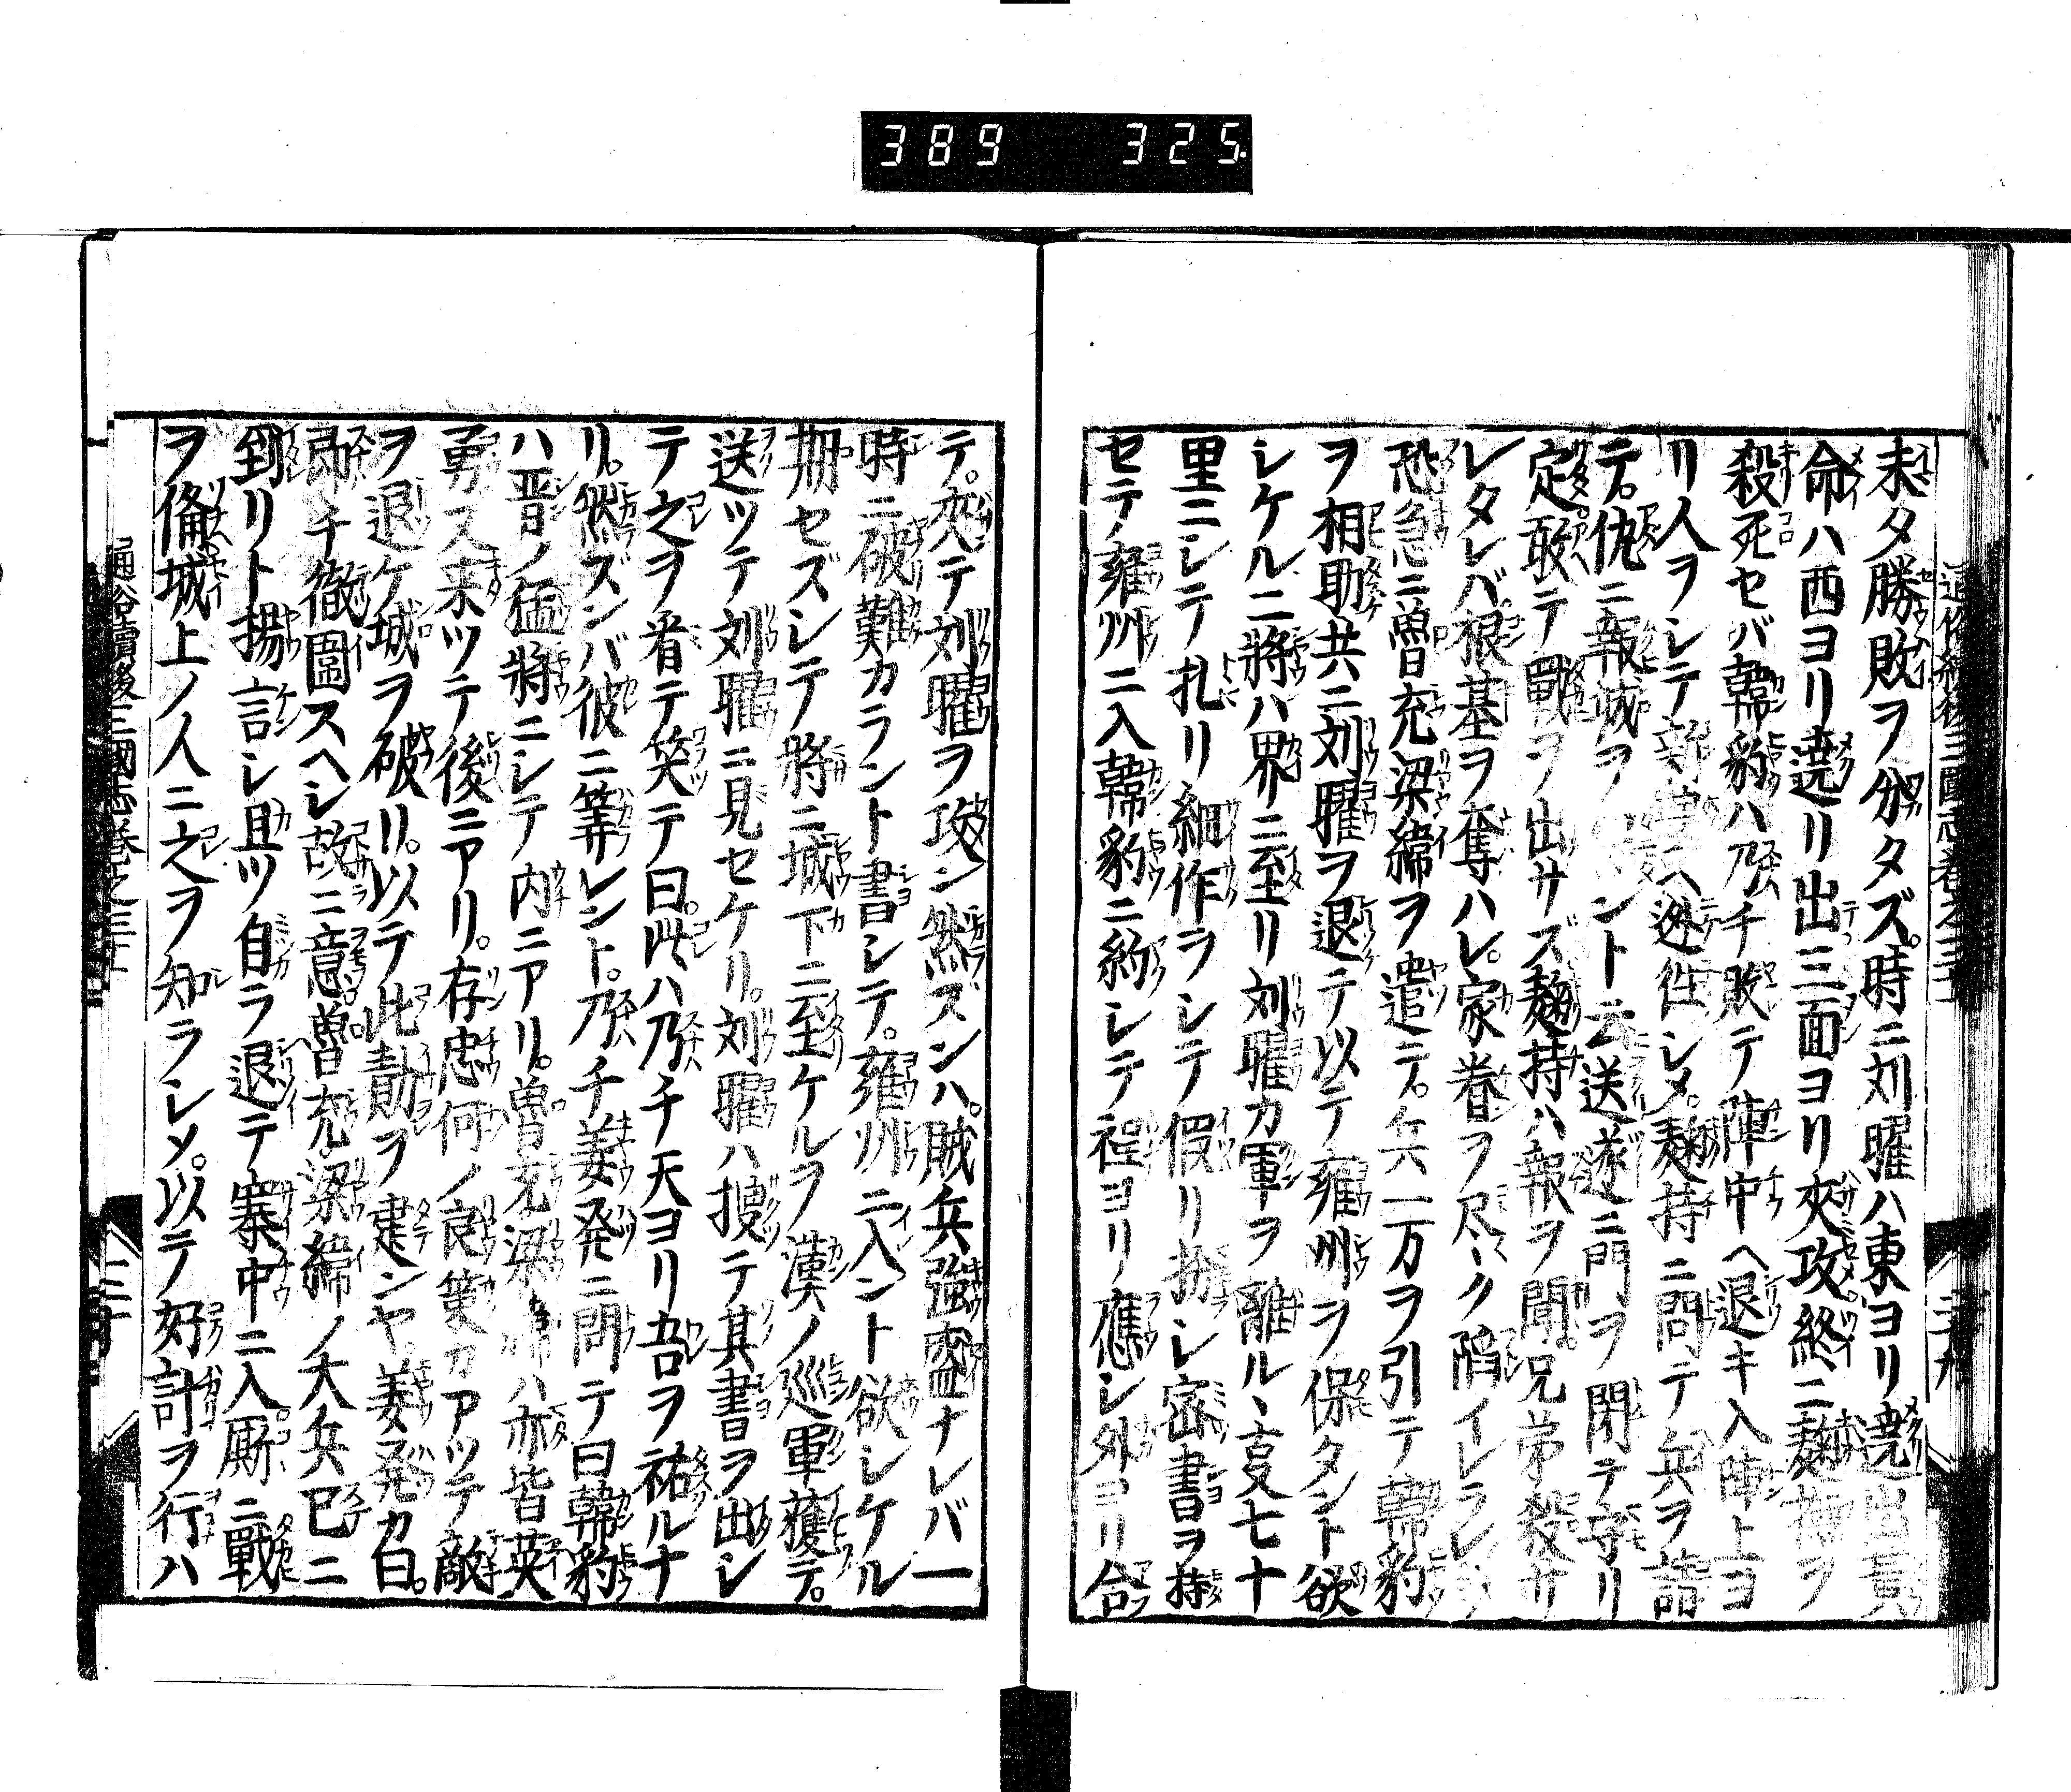 389 325
未タ勝敗ヲ分タズ。時ニ刘曜ハ東ヨリ遶出黄
命ハ西ヨリ遶リ出三面ヨリ夾攻終ニ麹持ヲ
殺死セバ韓豹ハ乃チ敗テ陣中ヘ退キ入陣上ヨ
リ人ヲシテ新ヘ迯徃シメ。麹持ニ問テ兵ヲ請
テ。仇ニ報城ヲント云送遂ニ門ヲ閉テ守リ
定。敢テ戰ヲ出サズ。麹持ハ報ヲ聞。兄弟殺サ
レタレバ。根基ヲ奪ハレ。家眷ヲ尽ク陷イレラレ
恐急ニ曽充梁緯ヲ遣テ。兵一万ヲ引テ韓豹
ヲ相助共ニ刘曜ヲ退テ以テ雍州ヲ保タント欲
シケル二將ハ界ニ至リ刘曜カ軍ヲ離ル、叓七十
里ニシテ扎リ細作ラシテ假リ扮シ密書ヲ持
セテ雍州ニ入韓豹ニ約シテ裎ヨリ應シ外ヨリ合
テ。夾テ刘曜ヲ攻ン然ズンハ。賊兵強盛ナレバ一
時ニ破難カラント書シテ。雍州ニ入ント欲シケル
期セズシテ將ニ城下ニ至ケルラ漢ノ廵軍獲テ。
送ツテ刘曜ニ見セケリ。刘曜ハ捜テ其書ヲ出シ
テ之ヲ看テ笑テ曰。此ハ乃チ天ヨリ吾ヲ祐ルナ
リ。然ズンバ彼ニ筭レント。乃チ姜発ニ問テ曰韓豹
ハ晋ノ猛將ニシテ内ニアリ。曽充梁緯ハ亦皆英
勇ス来ツテ後ニアリ。存忠何ノ良策カアツテ敵
ヲ退ケ城ヲ破リ。以テ此勣ヲ建ンヤ。姜発カ曰。
即チ徹圍スヘシ故ニ意。曽充。梁緯ノ大兵已ニ
到リト揚言シ且ツ自ラ退テ寨中ニ入厮ニ戰
ヲ俻城上ノ人ニ之ヲ知ラシメ。以テ好計ヲ行ハ
通俗續後三國志巻之三十
三十